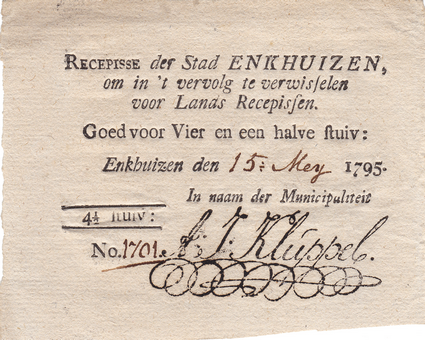 RECEPISSE der Stad ENKHUIZEN,
om in 't vervolg te verwisſelen
voor Lands Recepisſen.
Goed voor Vier en een halve ſtuiv:
Enkhuizen den 15: Mey 1795.
In naam der Municipaliteit
4½ ſtuiv:
No. 1701. J. Kluppel.